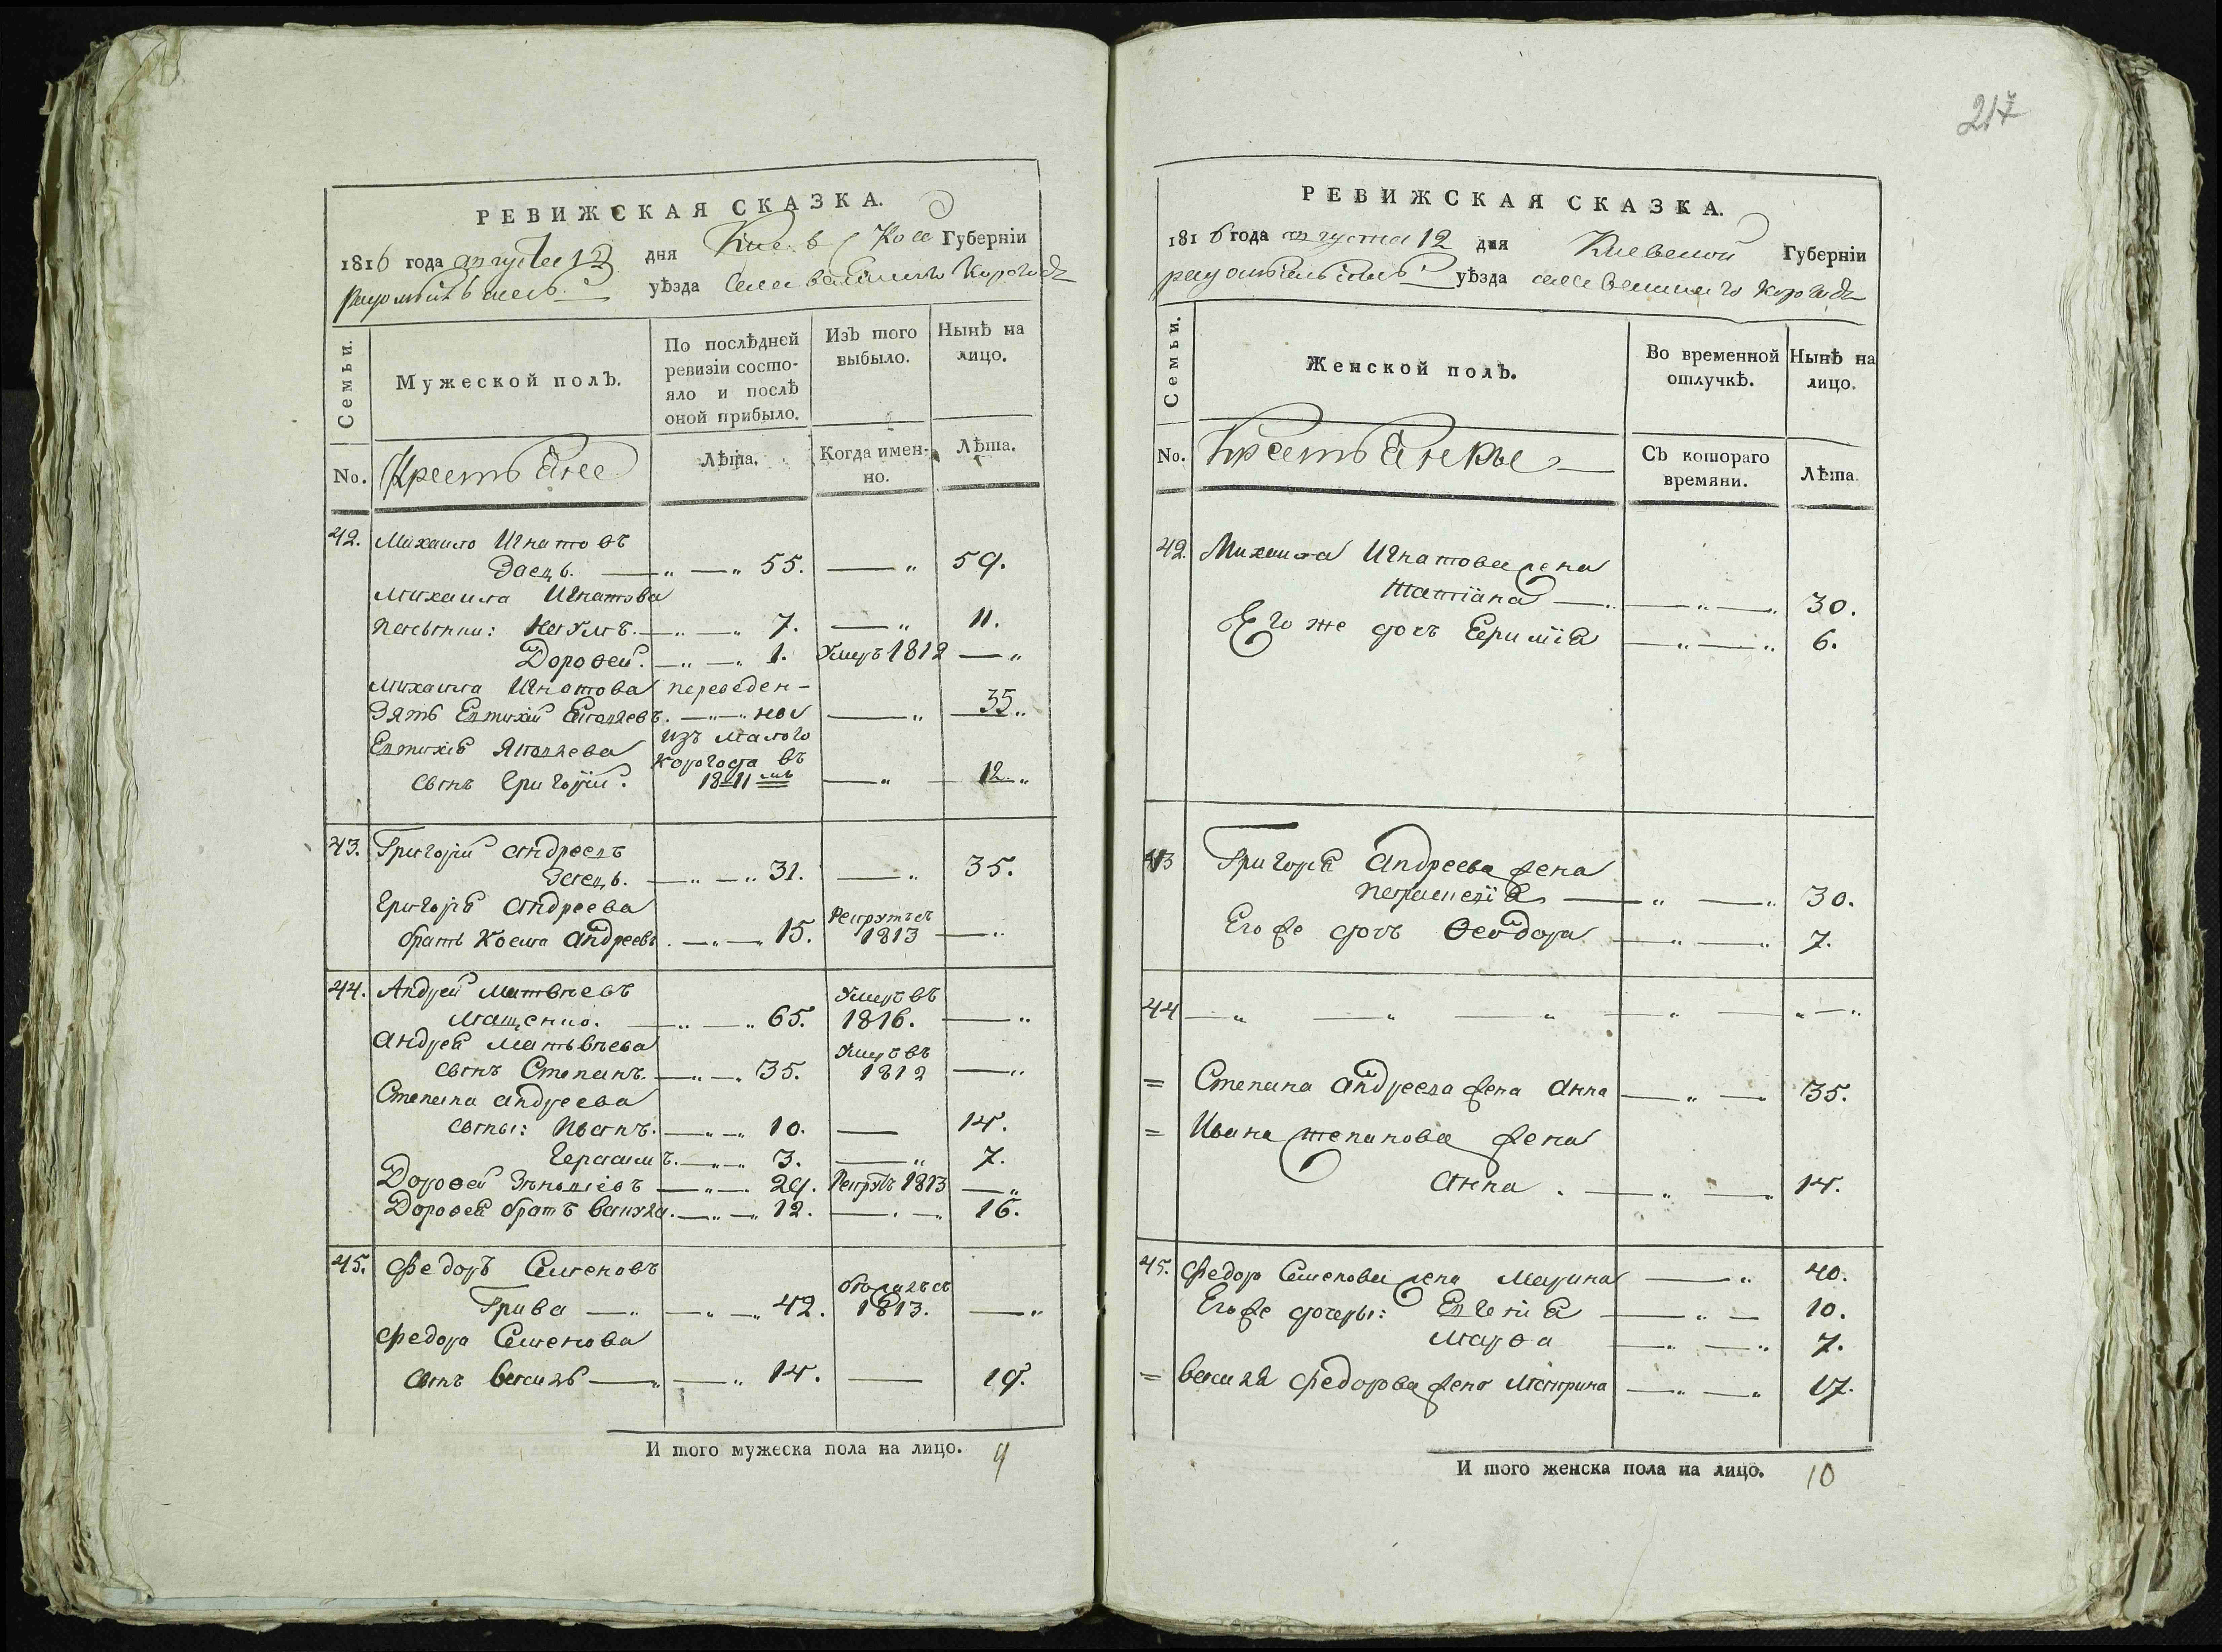 РЕВИЖСКАЯ СКАЗКА.
1816 года августа 12 дня Киевской Губерніи
радомысльскаго уѣзда села великаго Корогода
Семьи.
Мужеской полЪ.
По послѣдней ревизіи состояло и послѣ оной прибыло.
ИзЪ того выбыло.
Нынѣ на лицо.
No.
Крестьяне
Лѣта.
Когда именно.
Лѣта.
42. Михайло Игнатовъ
Заецъ. 55. 59.
Михаила Игнатова
пасынки: Наумъ. 7. 11.
Дорофей. 1. Умеръ 1812
Михаила Игнатова переведен-
Зять Евтихій 35
Евтихія изъ малого
Корогода въ
сынъ Григорій. 1811мъ 12
43. Григорій Андреевъ
Заецъ. 31. 35.
Григорія Андреева
братъ Косма Андреевъ. 15. 1813
44. Андрей Матвѣевъ
Мащенко. 65. Умеръ въ 1816.
Андрея Матвѣева
сынъ Степанъ. 35. Умеръ въ 1812
Степана Андреева
сыны: Иванъ. 10. 14.
Герасимъ. 3. 7.
Дорофей 29. Рекрутъ 1813
Дорофея братъ Вакула. 12. 16.
45. Федоръ Семеновъ
Грива 42. 1813.
Федора Семенова
сынъ Василь 14. 19.
И того мужеска пола на лицо. 9
217
РЕВИЖСКАЯ СКАЗКА.
1816 года августа 12 дня Киевской Губерніи
радомысльскаго уѣзда села великаго Корогода
Семьи.
Женской полЪ.
Во временной отлучкѣ.
Нынѣ на лицо.
No.
Крестьянки
СЪ котораго времяни.
Лѣта.
42. Михаила Игнатова жена
Татіана 30.
Его же дочь 6.
43 Григорія Андреева жена
30.
Его же дочь Феодора 7.
44
= Степана Андреева жена Анна 35.
= Ивана Степанова жена
Анна. 14.
45. Федора Семенова жена Марина 40.
Его же дочери: Евгенія 10.
Марфа 7.
= Василя Федорова жена 17.
И того женска пола на лицо. 10